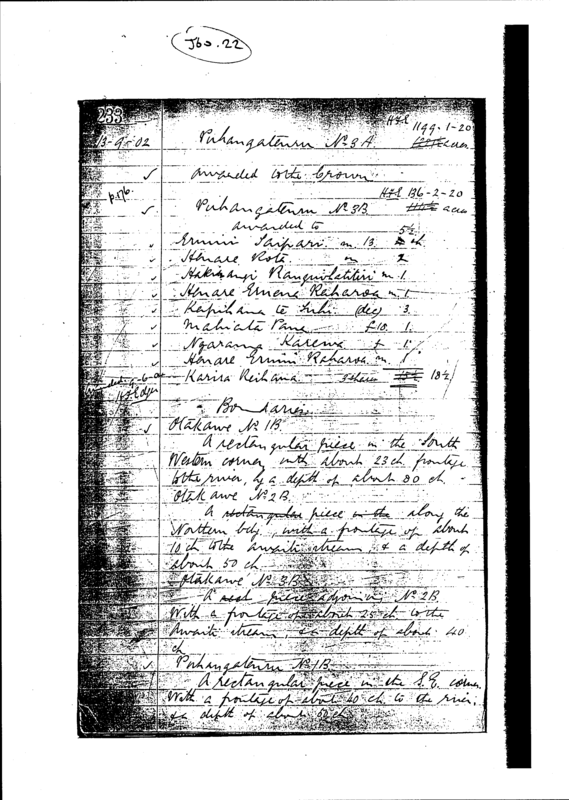 J60.22
233
13-9-02 Puhangateuru No 3A 1199-1-20
acres
✓ awarded to the Crown
p.176. 136-2-20
✓ Puhangateuru No 3B acres
awarded to
Erueti Taipari m 13. 5½ ch
Henare Rota m 2
m 1.
Henare m 1
Kapihana te Tuhi (dec) 3.
Mahiata Pana f 10. 1.
Ngarama Karema f 1.
Henare m 1.
Karira Reihana shares 18½
Boundaries
✓ Otakawe No 1B.
A rectangular piece in the South
Western corner, with about 23 ch frontage
to the river, by a depth of about 80 ch.
Otakawe No 2B
A rectangular piece in the along the
Northern bdy, with a frontage of about
10 ch to the Awaiti stream, & a depth of
about 50 ch
Otakawe No 3B
A piece adjoining No 2B
With a frontage of about 25 ch to the
Awaiti stream, & a depth of about 40
ch
✓ Puhangateuru No 1B
A rectangular piece in the S.E. corner
With a frontage of about 40 ch to the river,
& a depth of about ch